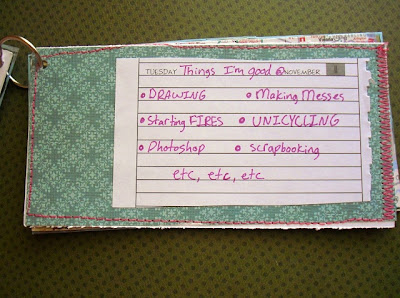 TUESDAY Things I'm good @ NOVEMBER 1
• DRAWING • Making Messes
• Starting FIRES • UNICYCLING
• Photoshop • scrapbooking
etc, etc, etc